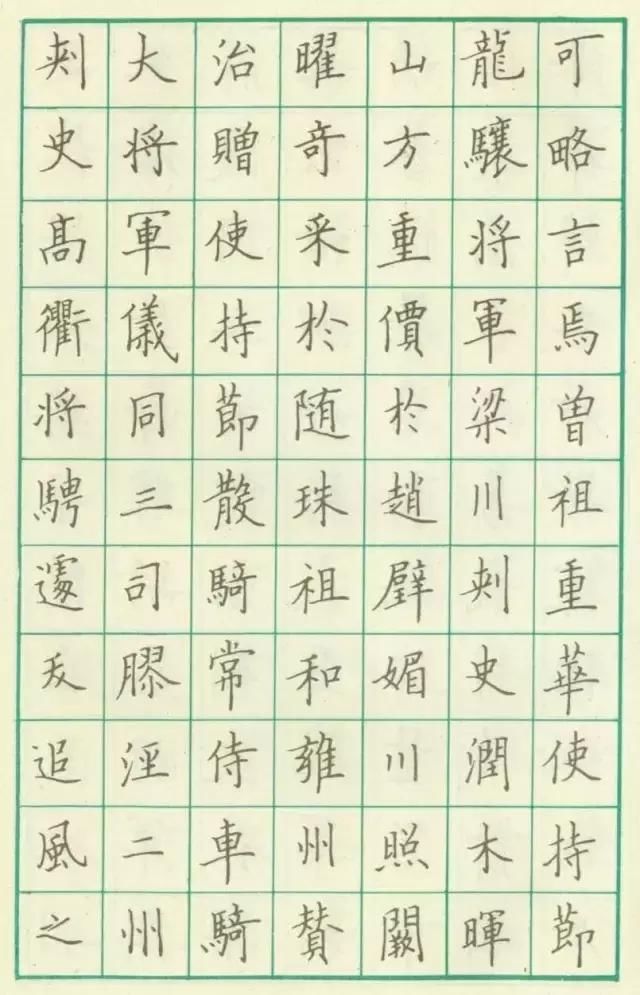 可略言焉曾祖重華使持節
龍驤将軍梁川刾史潤木暉
山方重價於趙璧媚川照闕
曜奇采於随珠祖和雍州賛
治贈使持節散騎常侍車騎
大将軍儀同三司膠涇二州
刾史髙衢将騁遽夭追風之